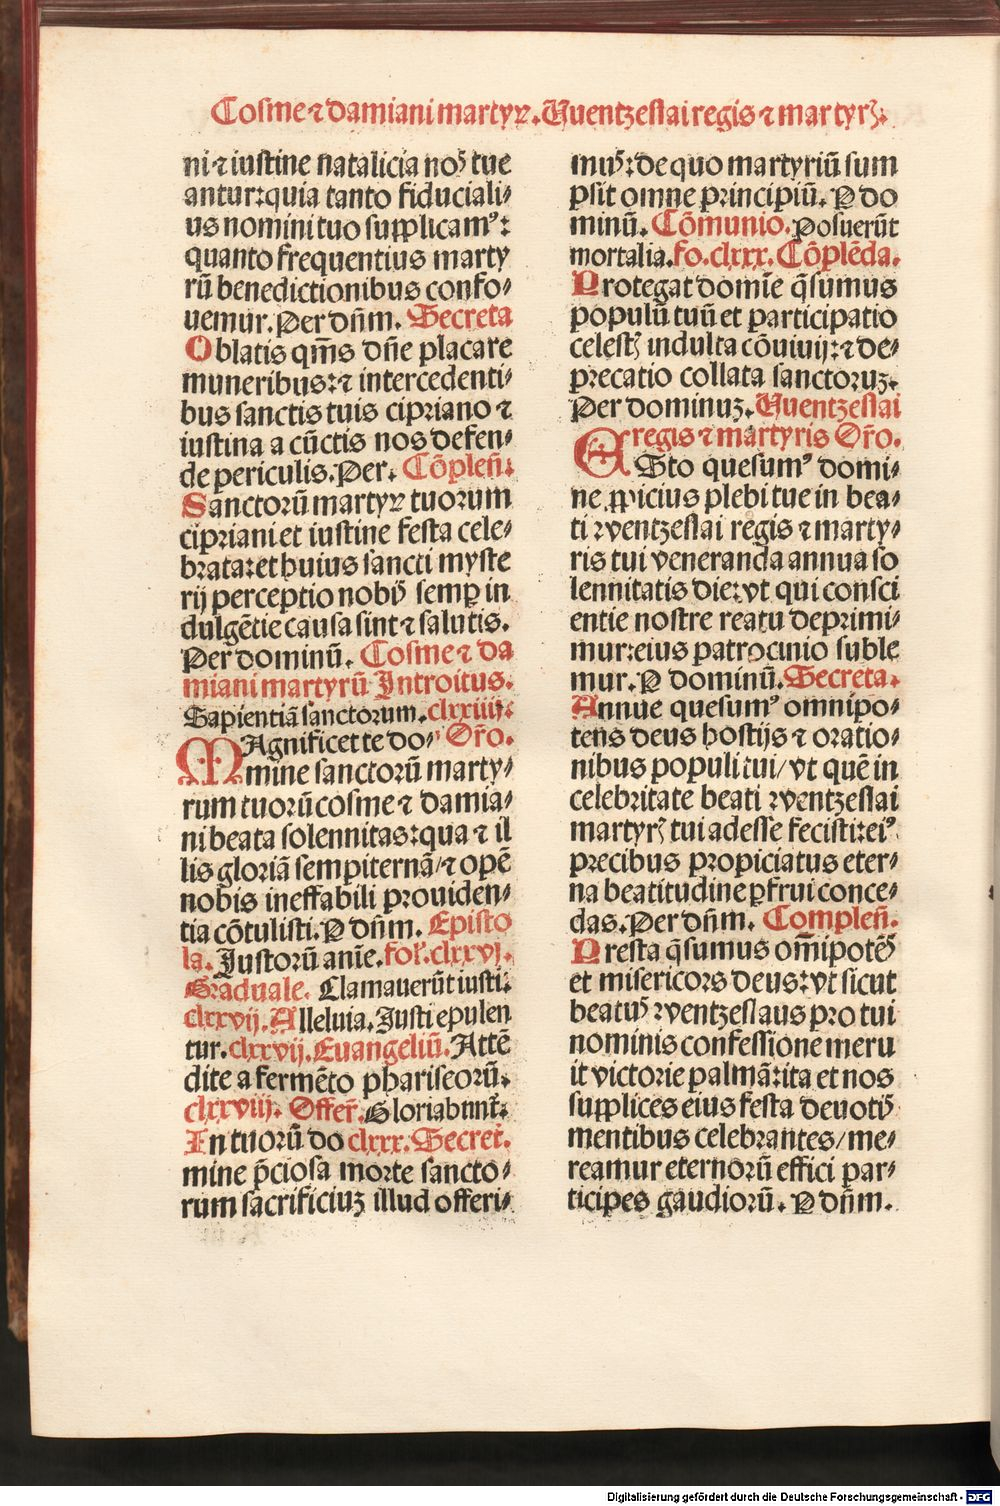 Cosme ⁊ damiani martyꝝ. Uuentzeslai regis ⁊ martyrꝭ.
ni ⁊ iustine natalicia noꝰ tue
antur: quia tanto fiduciali⸗
us nomini tuo supplicamꝰ:
quanto frequentius marty
rū benedictionibus confo⸗
uemur. Per dn̄m. Secreta
Oblatis qm̄s dn̄e placare
muneribus: ⁊ intercedenti⸗
bus sanctis tuis cipriano ⁊
iustina a cūctis nos defen⸗
de periculis. Per. Cōplen̄.
Sanctorū martyꝝ tuorum
cipriani et iustine festa cele⸗
brata: et huius sancti myste
rij perceptio nobꝭ semꝑ in
dulgētie causa sint ⁊ salutis.
Per dominū. Cosme ⁊ da
miani martyrū Introitus.
Sapientiā sanctorum. clxxiiij.
MAgnificet te do⸗ Or̄o.
mine sanctorū marty⸗
rum tuorū cosme ⁊ damia⸗
ni beata solennitas: qua ⁊ il
lis gloriā sempiternā/ ⁊ opē
nobis ineffabili prouiden⸗
tia cōtulisti. P dn̄m. Episto
la. Justorū anīe. fol. clxxvj.
Graduale. Clamauerūt iusti.
clxxvij. Alleluia. Justi epulen
tur. clxxvij. Euangeliū. Attē
dite a fermēto phariseorū.
clxxviij. Offer̄. Gloriabunt̄.
In tuorū do clxxx. Secret̄.
mine p̄ciosa morte sancto⸗
rum sacrificiuꝫ illud offeri⸗
muꝰ: de quo martyriū sum
psit omne principiū. P do
minū. Cōmunio. Posuerūt
mortalia. fo. clxxx. Cōplēda.
Protegat domīe q̄sumus
populū tuū et participatio
celestꝭ indulta cōuiuij: ⁊ de⸗
precatio collata sanctoruꝫ.
Per dominuꝫ. Uuentzeslai
regis ⁊ martyris Or̄o.
ESto quesumꝰ domi⸗
ne ꝓpicius plebi tue in bea⸗
ti wentzeslai regis ⁊ marty⸗
ris tui veneranda annua so
lennitatis die: vt qui consci
entie nostre reatu deprimi⸗
mur: eius patrocinio suble
mur. P dominū. Secreta.
Annue quesumꝰ omnipo⸗
tens deus hostijs ⁊ oratio⸗
nibus populi tui/ vt quē in
celebritate beati wentzeslai
martyrꝭ tui adesse fecisti: eiꝰ
precibus propiciatus eter⸗
na beatitudine ꝑfrui conce⸗
das. Per dn̄m. Complen̄.
Presta q̄sumus om̄ipotēs
et misericors deus: vt sicut
beatuꝰ wentzeslaus pro tui
nominis confessione meru
it victorie palmā: ita et nos
supplices eius festa deuotꝭ
mentibus celebrantes/ me⸗
reamur eternorū effici par⸗
ticipes gaudiorū. P dn̄m.
Digitalisierung gefördert durch die Deutsche Forschungsgemeinschaft - DFG